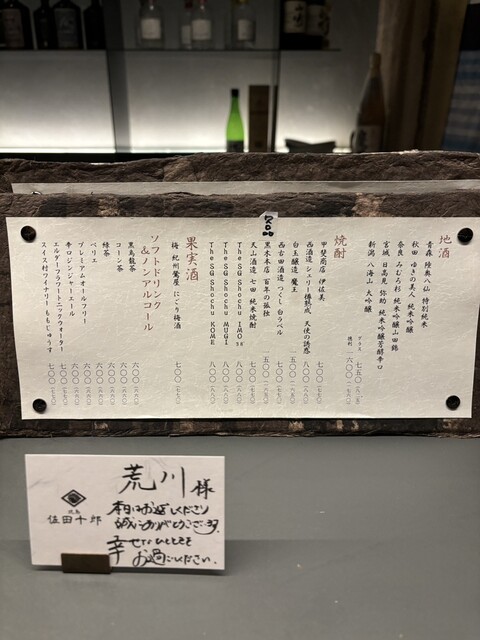 地酒
青森 陸奥八仙 特別純米
秋田 ゆきの美人 純米吟醸
奈良 みむろ杉 純米吟醸山田錦
宮城 日高見 弥助 純米吟醸芳醇辛口
新潟 八海山 大吟醸
グラス 七五〇
徳利 一六〇〇
焼酎
甲斐商店 伊佐美 七〇〇
西酒造 シェリー樽熟成 天使の誘惑
白玉醸造 魔王
西吉田酒造 つくし 白ラベル
欠品
黒木本店 百年の孤独
天山酒造 七田 純米焼酎
The SG Shochu IMO
The SG Shochu MUGI 八〇〇
The SG Shochu KOME 八〇〇
果実酒
梅 紀州鶯屋 にごり梅酒 七〇〇
ソフトドリンク
&ノンアルコール
黒烏龍茶 六〇〇
コーン茶 六〇〇
緑茶 六〇〇
ペリエ 六〇〇
プレミアムオールフリー 六〇〇
辛口ジンジャーエール 六〇〇
エルダーフラワートニックウォーター 七〇〇
スイス村ワイナリー ももじゅうす 七〇〇
佐田十郎
荒川様
本日はお越しくださり
誠にありがとうございます。
幸せなひとときを
お過ごしください。